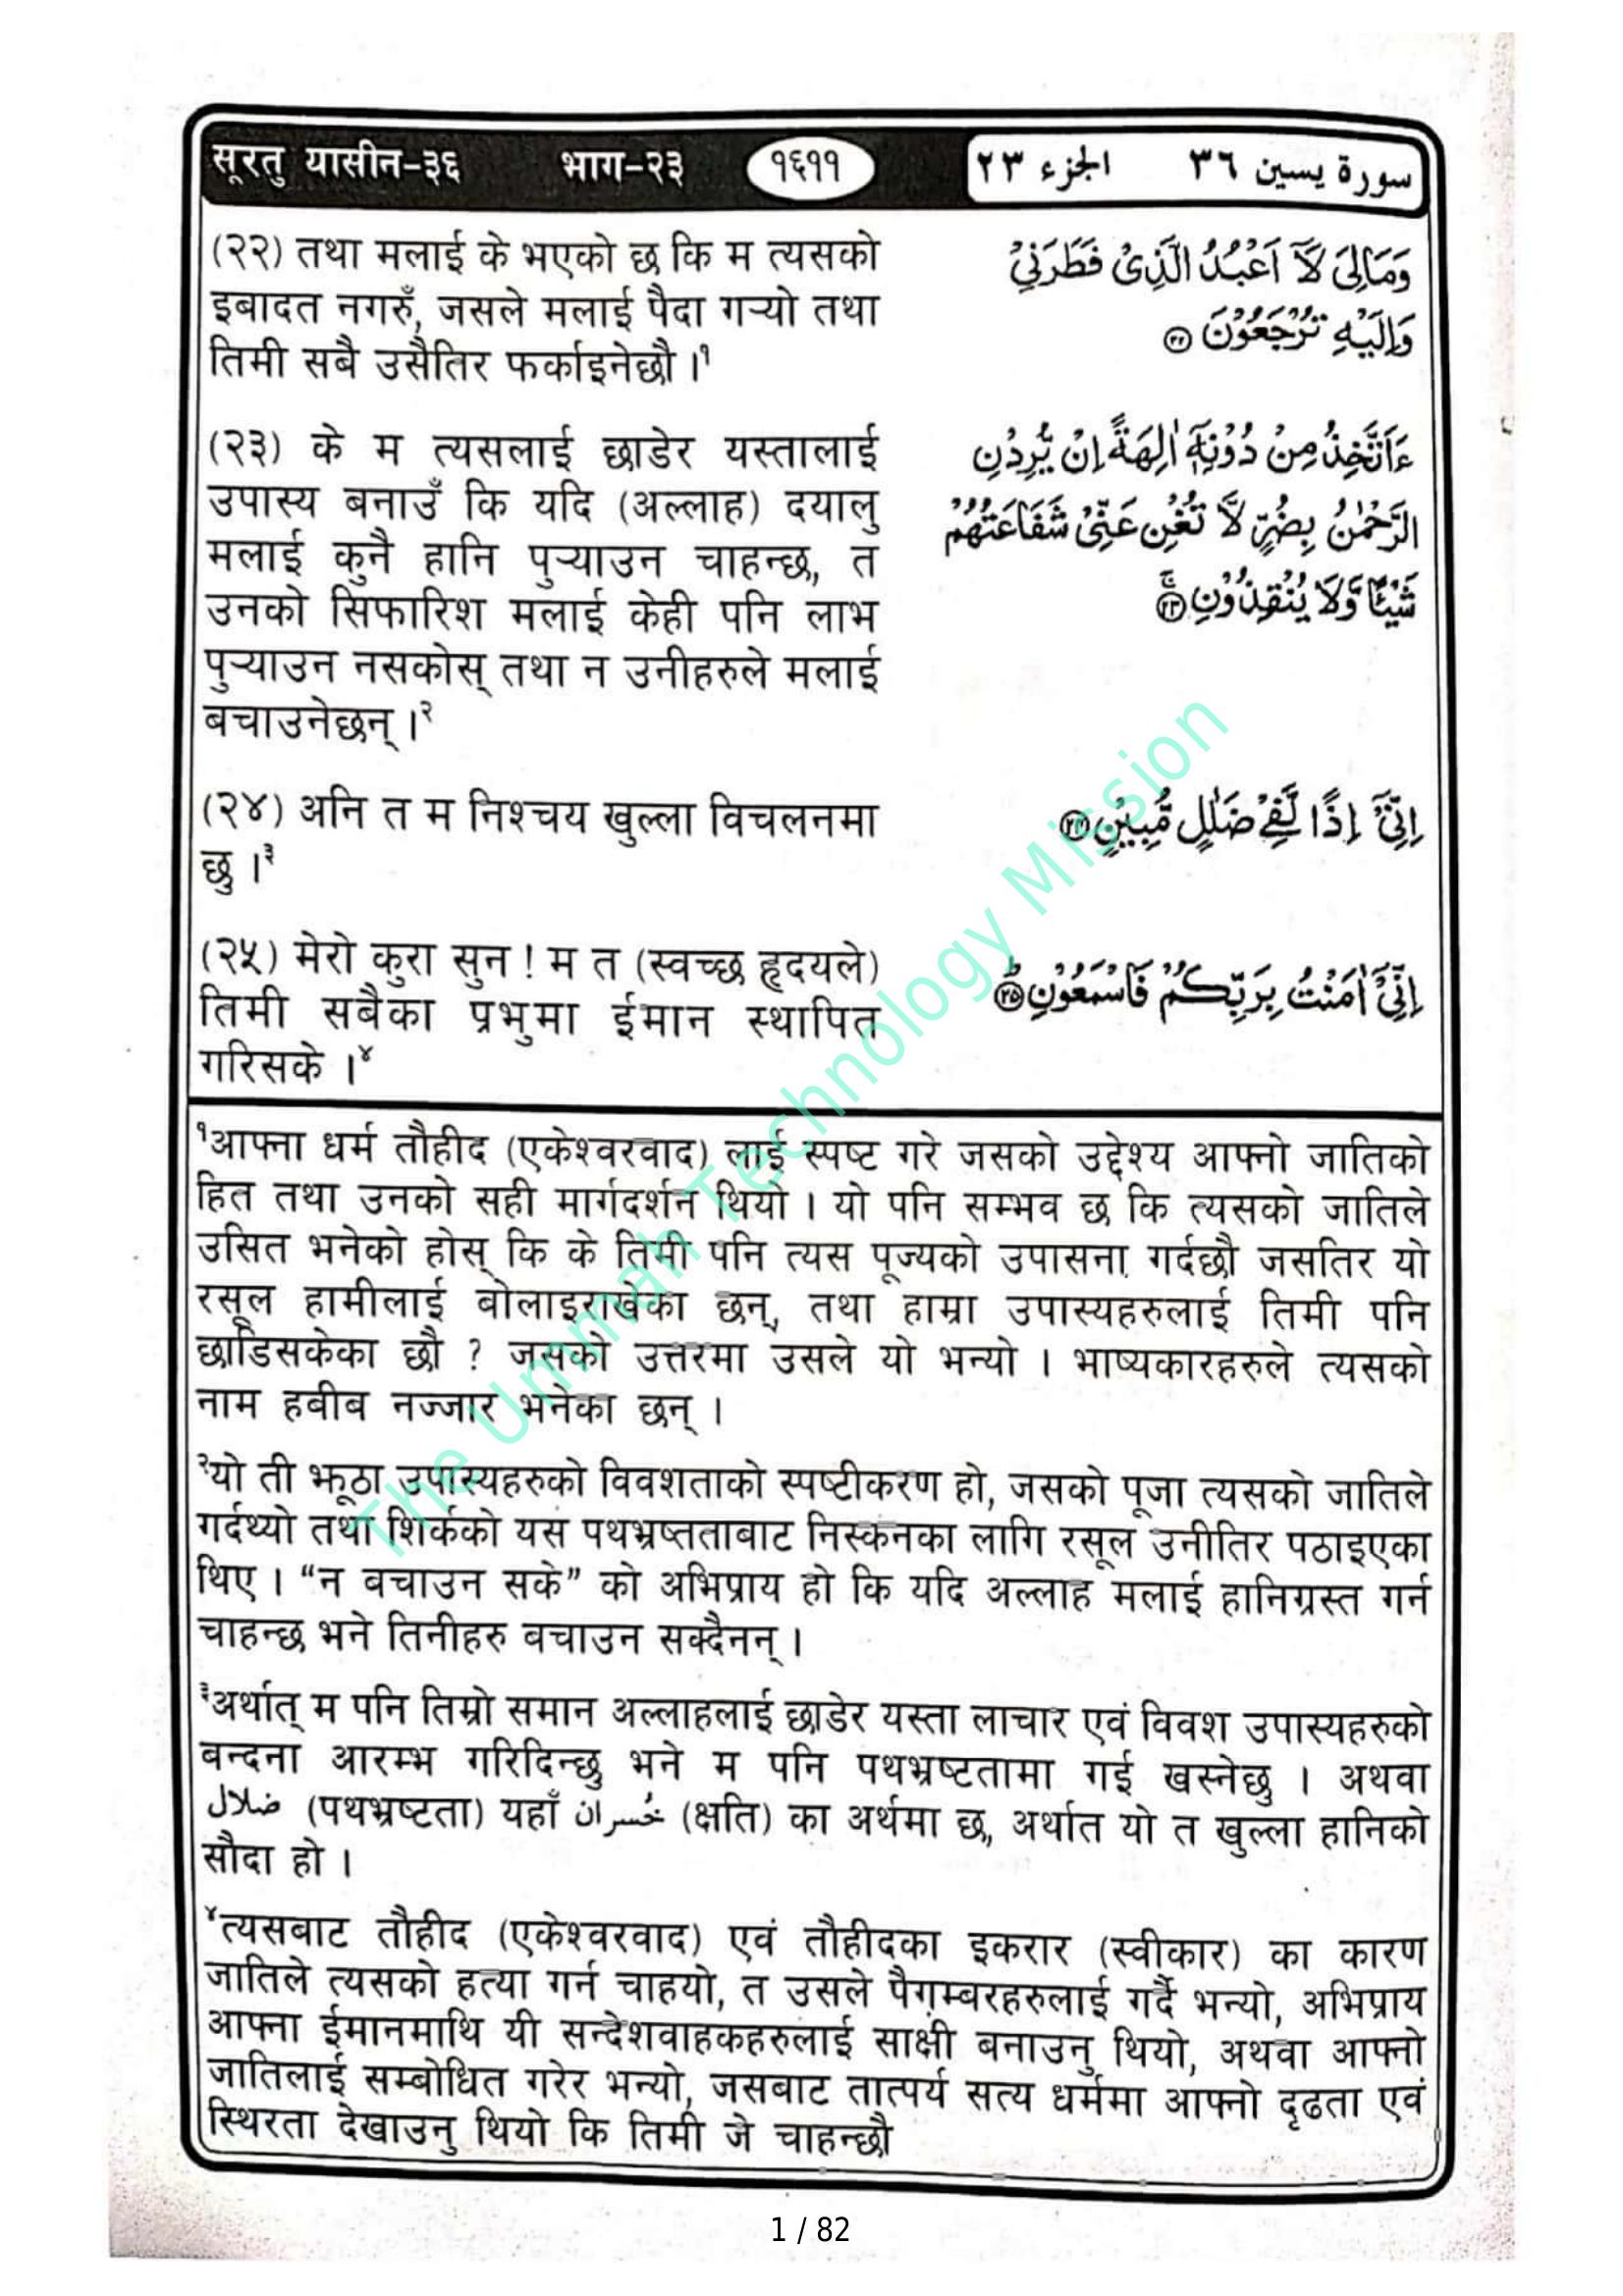 सूरतु यासीन-३६ भाग-२३ १६११ الجزء ٢٣ سورة يسين ٣٦
(२२) तथा मलाई के भएको छ कि म त्यसको
इबादत नगरुँ, जसले मलाई पैदा गऱ्यो तथा
तिमी सबै उसैतिर फर्काइनेछौ ।१
وَمَالِيَ لَآ اَعْبُدُ الَّذِىْ فَطَرَنِىْ
وَاِلَيْهِ تُرْجَعُوْنَ ٢٢
(२३) के म त्यसलाई छाडेर यस्तालाई
उपास्य बनाउँ कि यदि (अल्लाह) दयालु
मलाई कुनै हानि पुऱ्याउन चाहन्छ, त
उनको सिफारिश मलाई केही पनि लाभ
पुऱ्याउन नसकोस् तथा न उनीहरुले मलाई
बचाउनेछन् ।२
ءَاَتَّخِذُ مِنْ دُوْنِهٖٓ اٰلِهَةً اِنْ يُّرِدْنِ
الرَّحْمٰنُ بِضُرٍّ لَّا تُغْنِ عَنِّىْ شَفَاعَتُهُمْ
شَيْئًا وَّلَا يُنْقِذُوْنِ ٢٣
(२४) अनि त म निश्चय खुल्ला विचलनमा
छु ।३
اِنِّىْٓ اِذًا لَّفِىْ ضَلٰلٍ مُّبِيْنٍ ٢٤
(२५) मेरो कुरा सुन ! म त (स्वच्छ हृदयले)
तिमी सबैका प्रभुमा ईमान स्थापित
गरिसके ।४
اِنِّىْٓ اٰمَنْتُ بِرَبِّكُمْ فَاسْمَعُوْنِ ٢٥
१आफ्ना धर्म तौहीद (एकेश्वरवाद) लाई स्पष्ट गरे जसको उद्देश्य आफ्नो जातिको
हित तथा उनको सही मार्गदर्शन थियो । यो पनि सम्भव छ कि त्यसको जातिले
उसित भनेको होस् कि के तिमी पनि त्यस पूज्यको उपासना गर्दछौ जसतिर यो
रसूल हामीलाई बोलाइराखेका छन्, तथा हाम्रा उपास्यहरुलाई तिमी पनि
छाडिसकेका छौ ? जसको उत्तरमा उसले यो भन्यो । भाष्यकारहरुले त्यसको
नाम हबीब नज्जार भनेका छन् ।
२यो ती झूठा उपास्यहरुको विवशताको स्पष्टीकरण हो, जसको पूजा त्यसको जातिले
गर्दथ्यो तथा शिर्कको यस पथभ्रष्तताबाट निस्कनका लागि रसूल उनीतिर पठाइएका
थिए । “न बचाउन सके” को अभिप्राय हो कि यदि अल्लाह मलाई हानिग्रस्त गर्न
चाहन्छ भने तिनीहरु बचाउन सक्दैनन् ।
३अर्थात् म पनि तिम्रो समान अल्लाहलाई छाडेर यस्ता लाचार एवं विवश उपास्यहरुको
बन्दना आरम्भ गरिदिन्छु भने म पनि पथभ्रष्टतामा गई खस्नेछु । अथवा
ضلال (पथभ्रष्टता) यहाँ خُسران (क्षति) का अर्थमा छ, अर्थात यो त खुल्ला हानिको
सौदा हो ।
४त्यसबाट तौहीद (एकेश्वरवाद) एवं तौहीदका इकरार (स्वीकार) का कारण
जातिले त्यसको हत्या गर्न चाहयो, त उसले पैग़म्बरहरुलाई गर्दै भन्यो, अभिप्राय
आफ्ना ईमानमाथि यी सन्देशवाहकहरुलाई साक्षी बनाउनु थियो, अथवा आफ्नो
जातिलाई सम्बोधित गरेर भन्यो, जसबाट तात्पर्य सत्य धर्ममा आफ्नो दृढता एवं
स्थिरता देखाउनु थियो कि तिमी जे चाहन्छौ
The Ummah Technology Mission
1 / 82